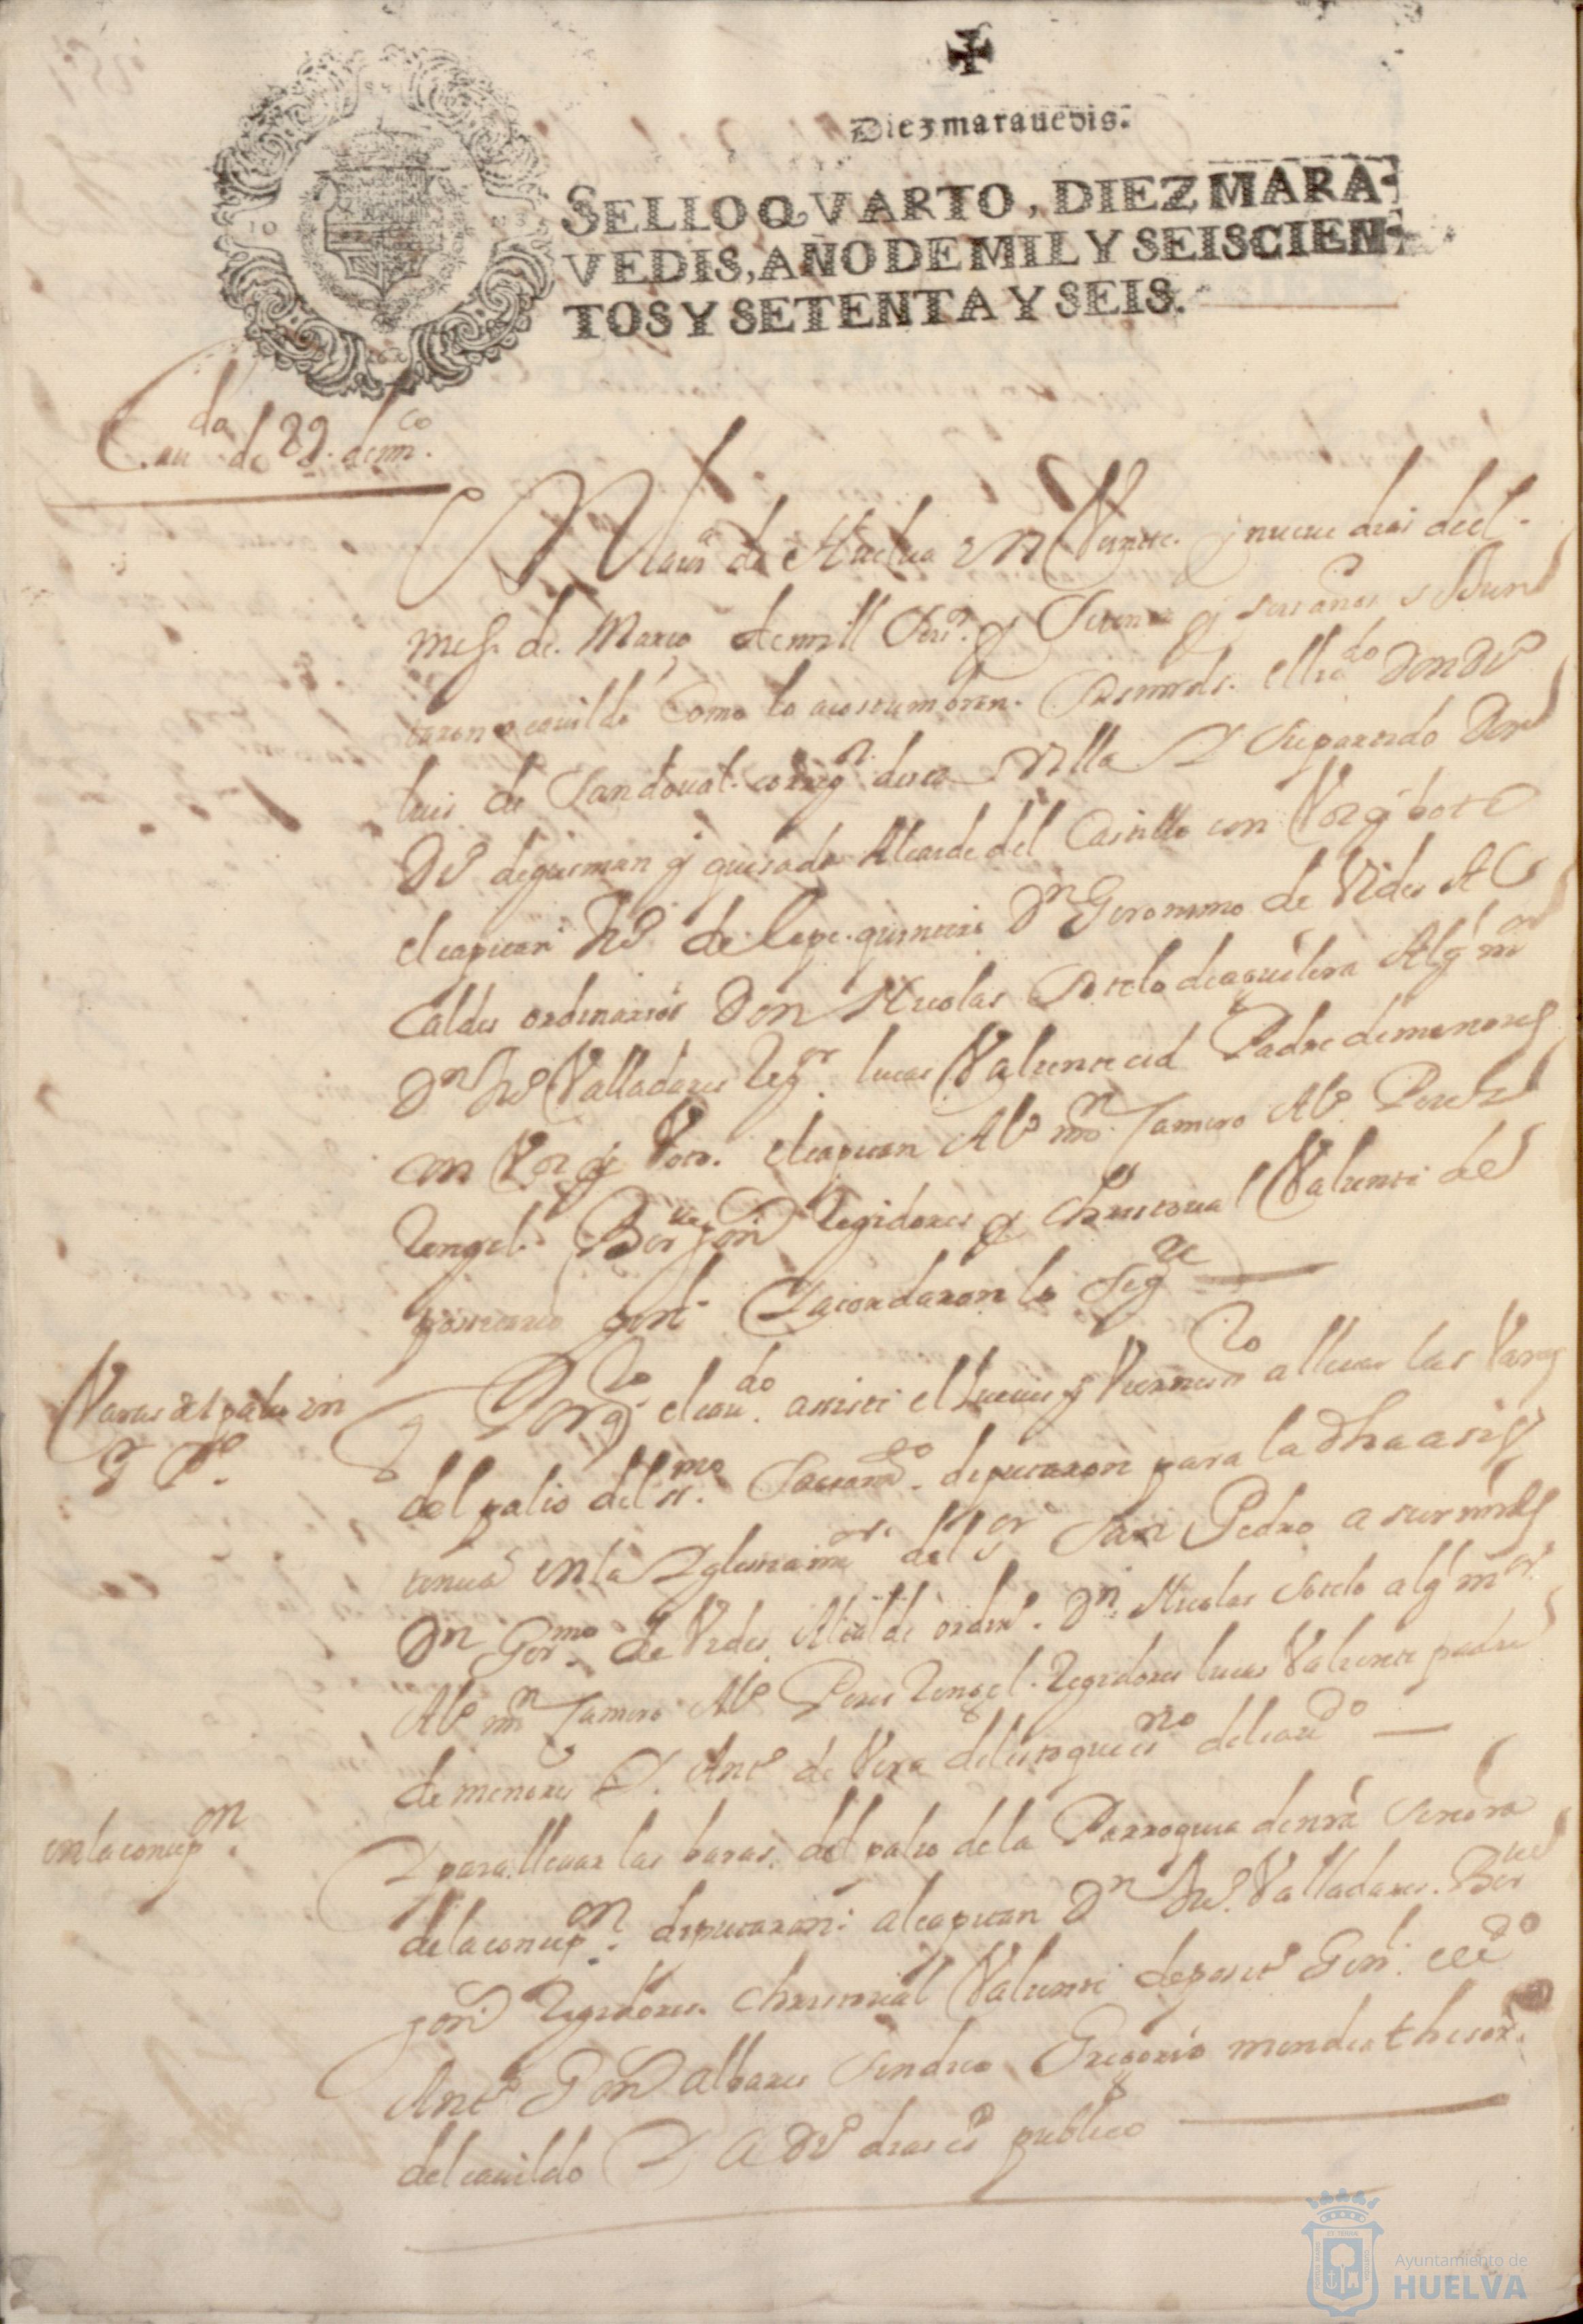 Diez maravedis.
SELLO QVARTO, DIEZ MARA-
VEDIS, AÑO DE MIL Y SEISCIEN-
TOS Y SETENTA Y SEIS.
Cau.do de 29. de m.co
En la uª de Huelua en Veynte y nueue dias deel
mes de Março de mill Seisº y Setenta y seis años se Jun
taron a cauildo Como lo acostumbran. Sus mrds. el licdo Don Dº
luis de Sandoual corregor desta Villa Y Su partido Don
Dº de gusman y quesada Alcaide del Castillo con Voz y boto
el capitan Juº de Lepe quintero Dn Geronimo de Vides Al
Caldes ordinarios Don Nicolas Sotelo de aguilera Algl mor
Dn Juº Valladares Regor lucas Valiente cid Padre de menores
con Voz y Voto. el capitan Alº mrn Camero Alº Perez
Rengel Bermejo Regidores y Christoual Valiente de
positario genl Y acordaron lo sigte
Varas del palio en
S. Pº
Por qto el caudo asiste el Jueues y Viernes sto a lleuar las Varas
del palio del ssmo Sacramto. deputaron para la dha asis
tencia en la Yglesia mor del Sor San Pedro a sus mrds
Dn Germo de Vides Alcalde ordinº. Dn Nicolas Sotelo algl mor
Alº mrn Camero Alº Peres Rengel Regidores lucas Valiente padre
de menores Y Antº de Vera delestoque esno del caudo
en la concepon.
Y para lleuar las baras del palio de la Parroquia de nra Señora
de la concepon. deputaron al capitan Dn Juº Valladares. Ber
Regidores. Christoual Valiente deposito Genl.
Antº albares Sindico Gregorio mendes thesoro
del cauildo Y A Dº dias esº publico
Ayuntamiento de
HUELVA